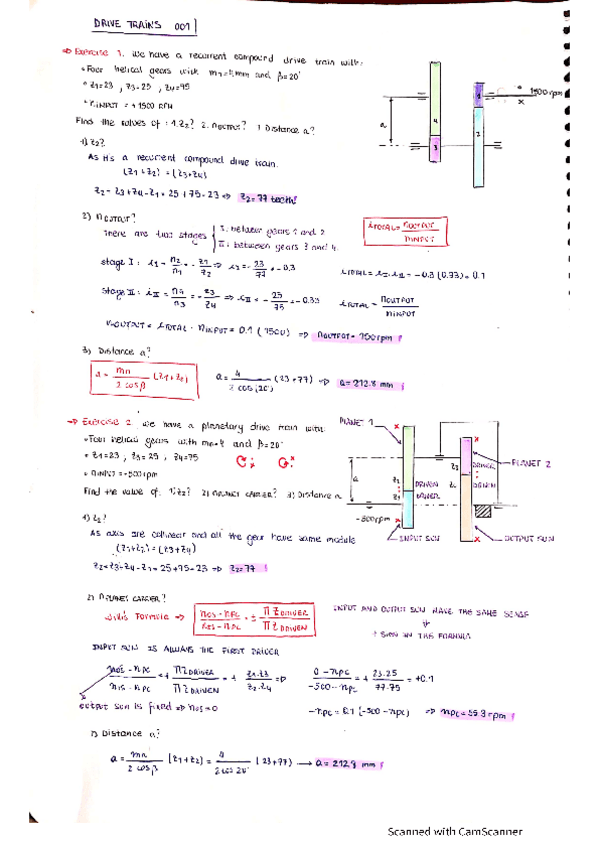 DRIVE TRAINS 001
⇒ Exercise 1. We have a recurrent compound drive train with:
• Four helical gears with mn=4mm and β=20°
• z1=23, z3=25, z4=75
• nINPUT = +1500 RPM
Find the values of: 1. z2? 2. nOUTPUT? 3. Distance a?
1) z2?
As it's a recurrent compound drive train:
(z1+z2) = (z3+z4)
z2 = z3+z4-z1 = 25+75-23 ⇒ z2=77 teeth!
1500 rpm
a
4
3
1
2
2) nOUTPUT?
There are two stages
I: between gears 1 and 2
II: between gears 3 and 4.
iTOTAL = nOUTPUT / nINPUT
stage I: i1 = n2/n1 = -z1/z2 ⇒ i1 = -23/77 = -0.3
iTOTAL = iI·iII = -0.3 (0.33) = 0.1
stage II: iII = n4/n3 = -z3/z4 ⇒ iII = -25/75 = -0.33
iTOTAL = nOUTPUT / nINPUT
nOUTPUT = iTOTAL · nINPUT = 0.1 (1500) ⇒ nOUTPUT = 150 rpm!
3) Distance a?
a = mn / 2 cosβ (z1+z2)
a = 4 / 2 cos(20°) (23+77) ⇒ a=212.8 mm!
⇒ Exercise 2. We have a planetary drive train with:
• Four helical gears with mn=4 and β=20°
• z1=23, z3=25, z4=75
• nINPUT = -500 rpm
Find the value of: 1) z2? 2) nPLANET CARRIER? 3) Distance a
PLANET 1
PLANET 2
a
z2
DRIVEN
z1
DRIVER
z3
DRIVER
z4
DRIVEN
-500 rpm
INPUT SUN
OUTPUT SUN
1) z2?
As axis are collinear and all the gear have same module
(z1+z2) = (z3+z4)
z2 = z3+z4-z1 = 25+75-23 ⇒ z2=77!
2) nPLANET CARRIER?
Willis Formula ⇒
nOS - nPC / nIS - nPC = ± ΠZDRIVER / ΠZDRIVEN
INPUT AND OUTPUT SUN HAVE THE SAME SENSE
⇓
+ SIGN IN THE FORMULA
INPUT SUN IS ALWAYS THE FIRST DRIVER
nOS - nPC / nIS - nPC = + ΠZDRIVER / ΠZDRIVEN = + z1·z3 / z2·z4 ⇒
0 - nPC / -500 - nPC = + 23·25 / 77·75 = +0.1
output sun is fixed ⇒ nOS=0
-nPC = 0.1 (-500 - nPC) ⇒ nPC = 55.3 rpm!
3) Distance a?
a = mn / 2 cosβ (z1+z2) = 4 / 2 cos 20° (23+77) → a=212.8 mm!
Scanned with CamScanner